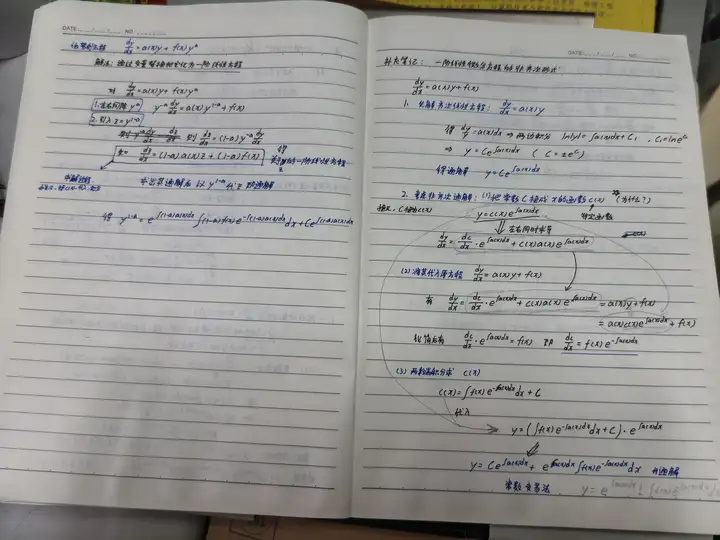 DATE NO.
伯努利方程 dy/dx = a(x)y + f(x)yⁿ
解法：通过变量替换把它化为一阶线性方程
对 dy/dx = a(x)y + f(x)yⁿ
1. 左右同除 yⁿ y⁻ⁿ dy/dx = a(x)y¹⁻ⁿ + f(x)
2. 引入 z = y¹⁻ⁿ
则 dz/dx = (1-n)y⁻ⁿ dy/dx
dz/dx = (1-n)a(x)z + (1-n)f(x) 得
一阶线性方程
求出其通解后 以 y¹⁻ⁿ 代 z 即通解
得 y¹⁻ⁿ = e^∫(1-n)a(x)dx ∫(1-n)f(x)e^-∫(1-n)a(x)dx dx + Ce^∫(1-n)a(x)dx
DATE NO.
补充笔记：一阶线性微分方程的非齐次形式
dy/dx = a(x)y + f(x)
1. 先解齐次线性方程：dy/dx = a(x)y
得 dy/y = a(x)dx ⇒ 两边积分 ln|y| = ∫a(x)dx + C₁, C₁ = lneᶜ
⇒ y = Ce^∫a(x)dx (C = ±eᶜ)
得通解 y = Ce^∫a(x)dx
2. 考虑非齐次通解：(1) 把常数C换成x的函数c(x) (为什么？)
换元，C换为c(x) y = c(x)e^∫a(x)dx 待定函数
⇓ 左右同时求导
dy/dx = dc/dx · e^∫a(x)dx + c(x)a(x)e^∫a(x)dx
(2) 将其代入原方程 dy/dx = a(x)y + f(x)
有 dy/dx = dc/dx · e^∫a(x)dx + c(x)a(x)e^∫a(x)dx = a(x)y + f(x)
= a(x)c(x)e^∫a(x)dx + f(x)
化简后有 dc/dx · e^∫a(x)dx = f(x) 即 dc/dx = f(x)e^-∫a(x)dx
(3) 两边积分求 c(x)
c(x) = ∫f(x)e^-∫a(x)dx dx + C
代入
y = (∫f(x)e^-∫a(x)dx dx + C) · e^∫a(x)dx
⇓
y = Ce^∫a(x)dx + e^∫a(x)dx ∫f(x)e^-∫a(x)dx dx 为通解
常数变易法